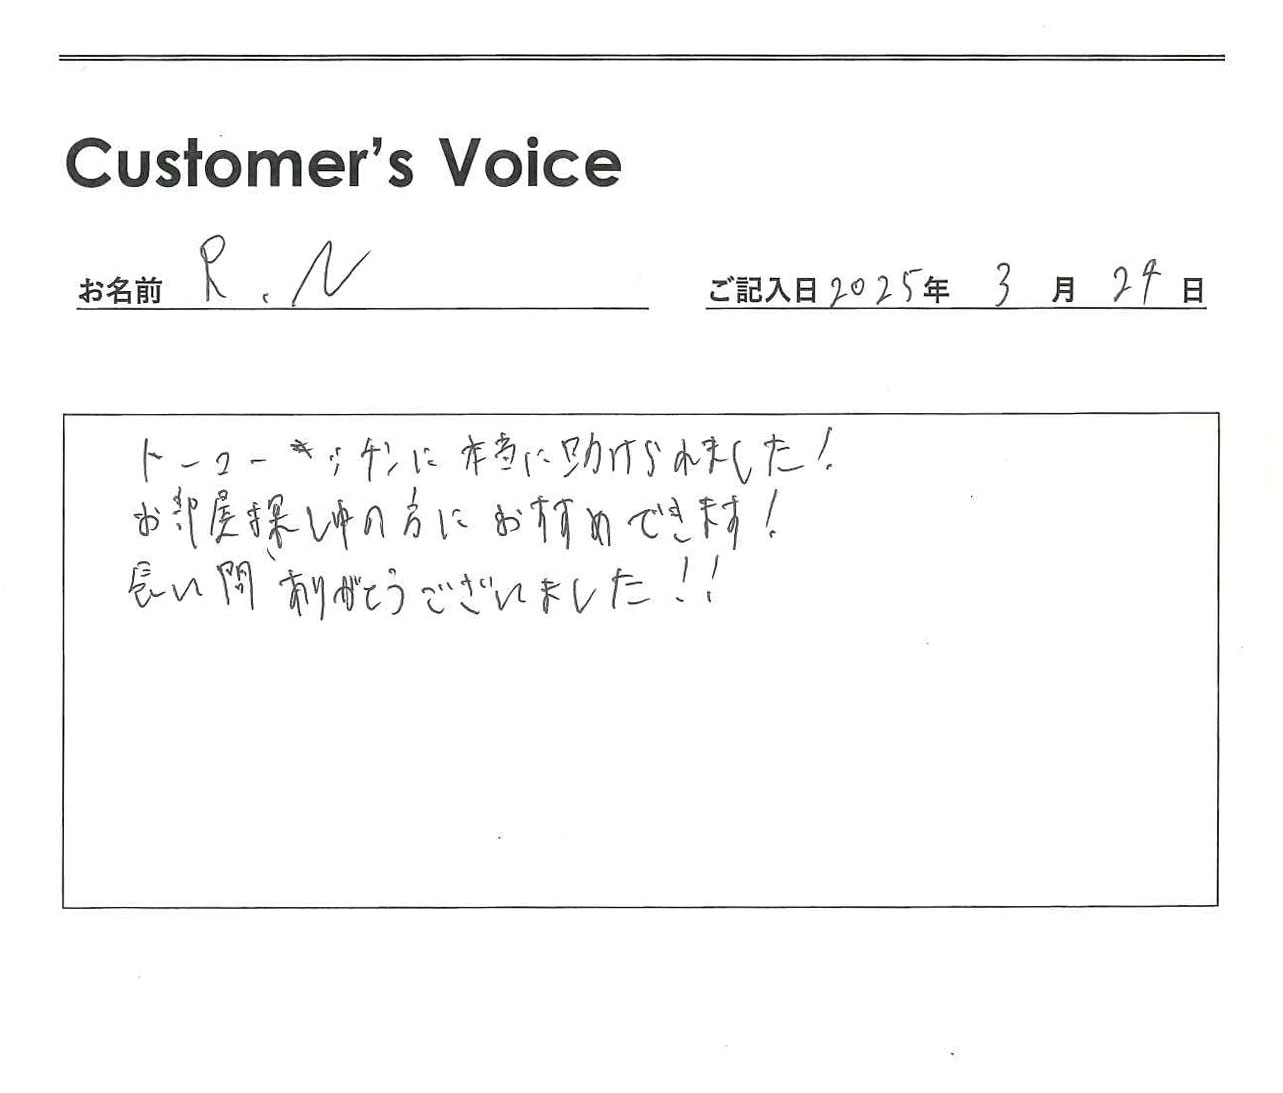 Customer's Voice
お名前 R.N
ご記入日 2025年 3月 24日
トーコーキッチンに本当に助けられました!
お部屋探し中の方におすすめできます!
長い間、ありがとうございました!!